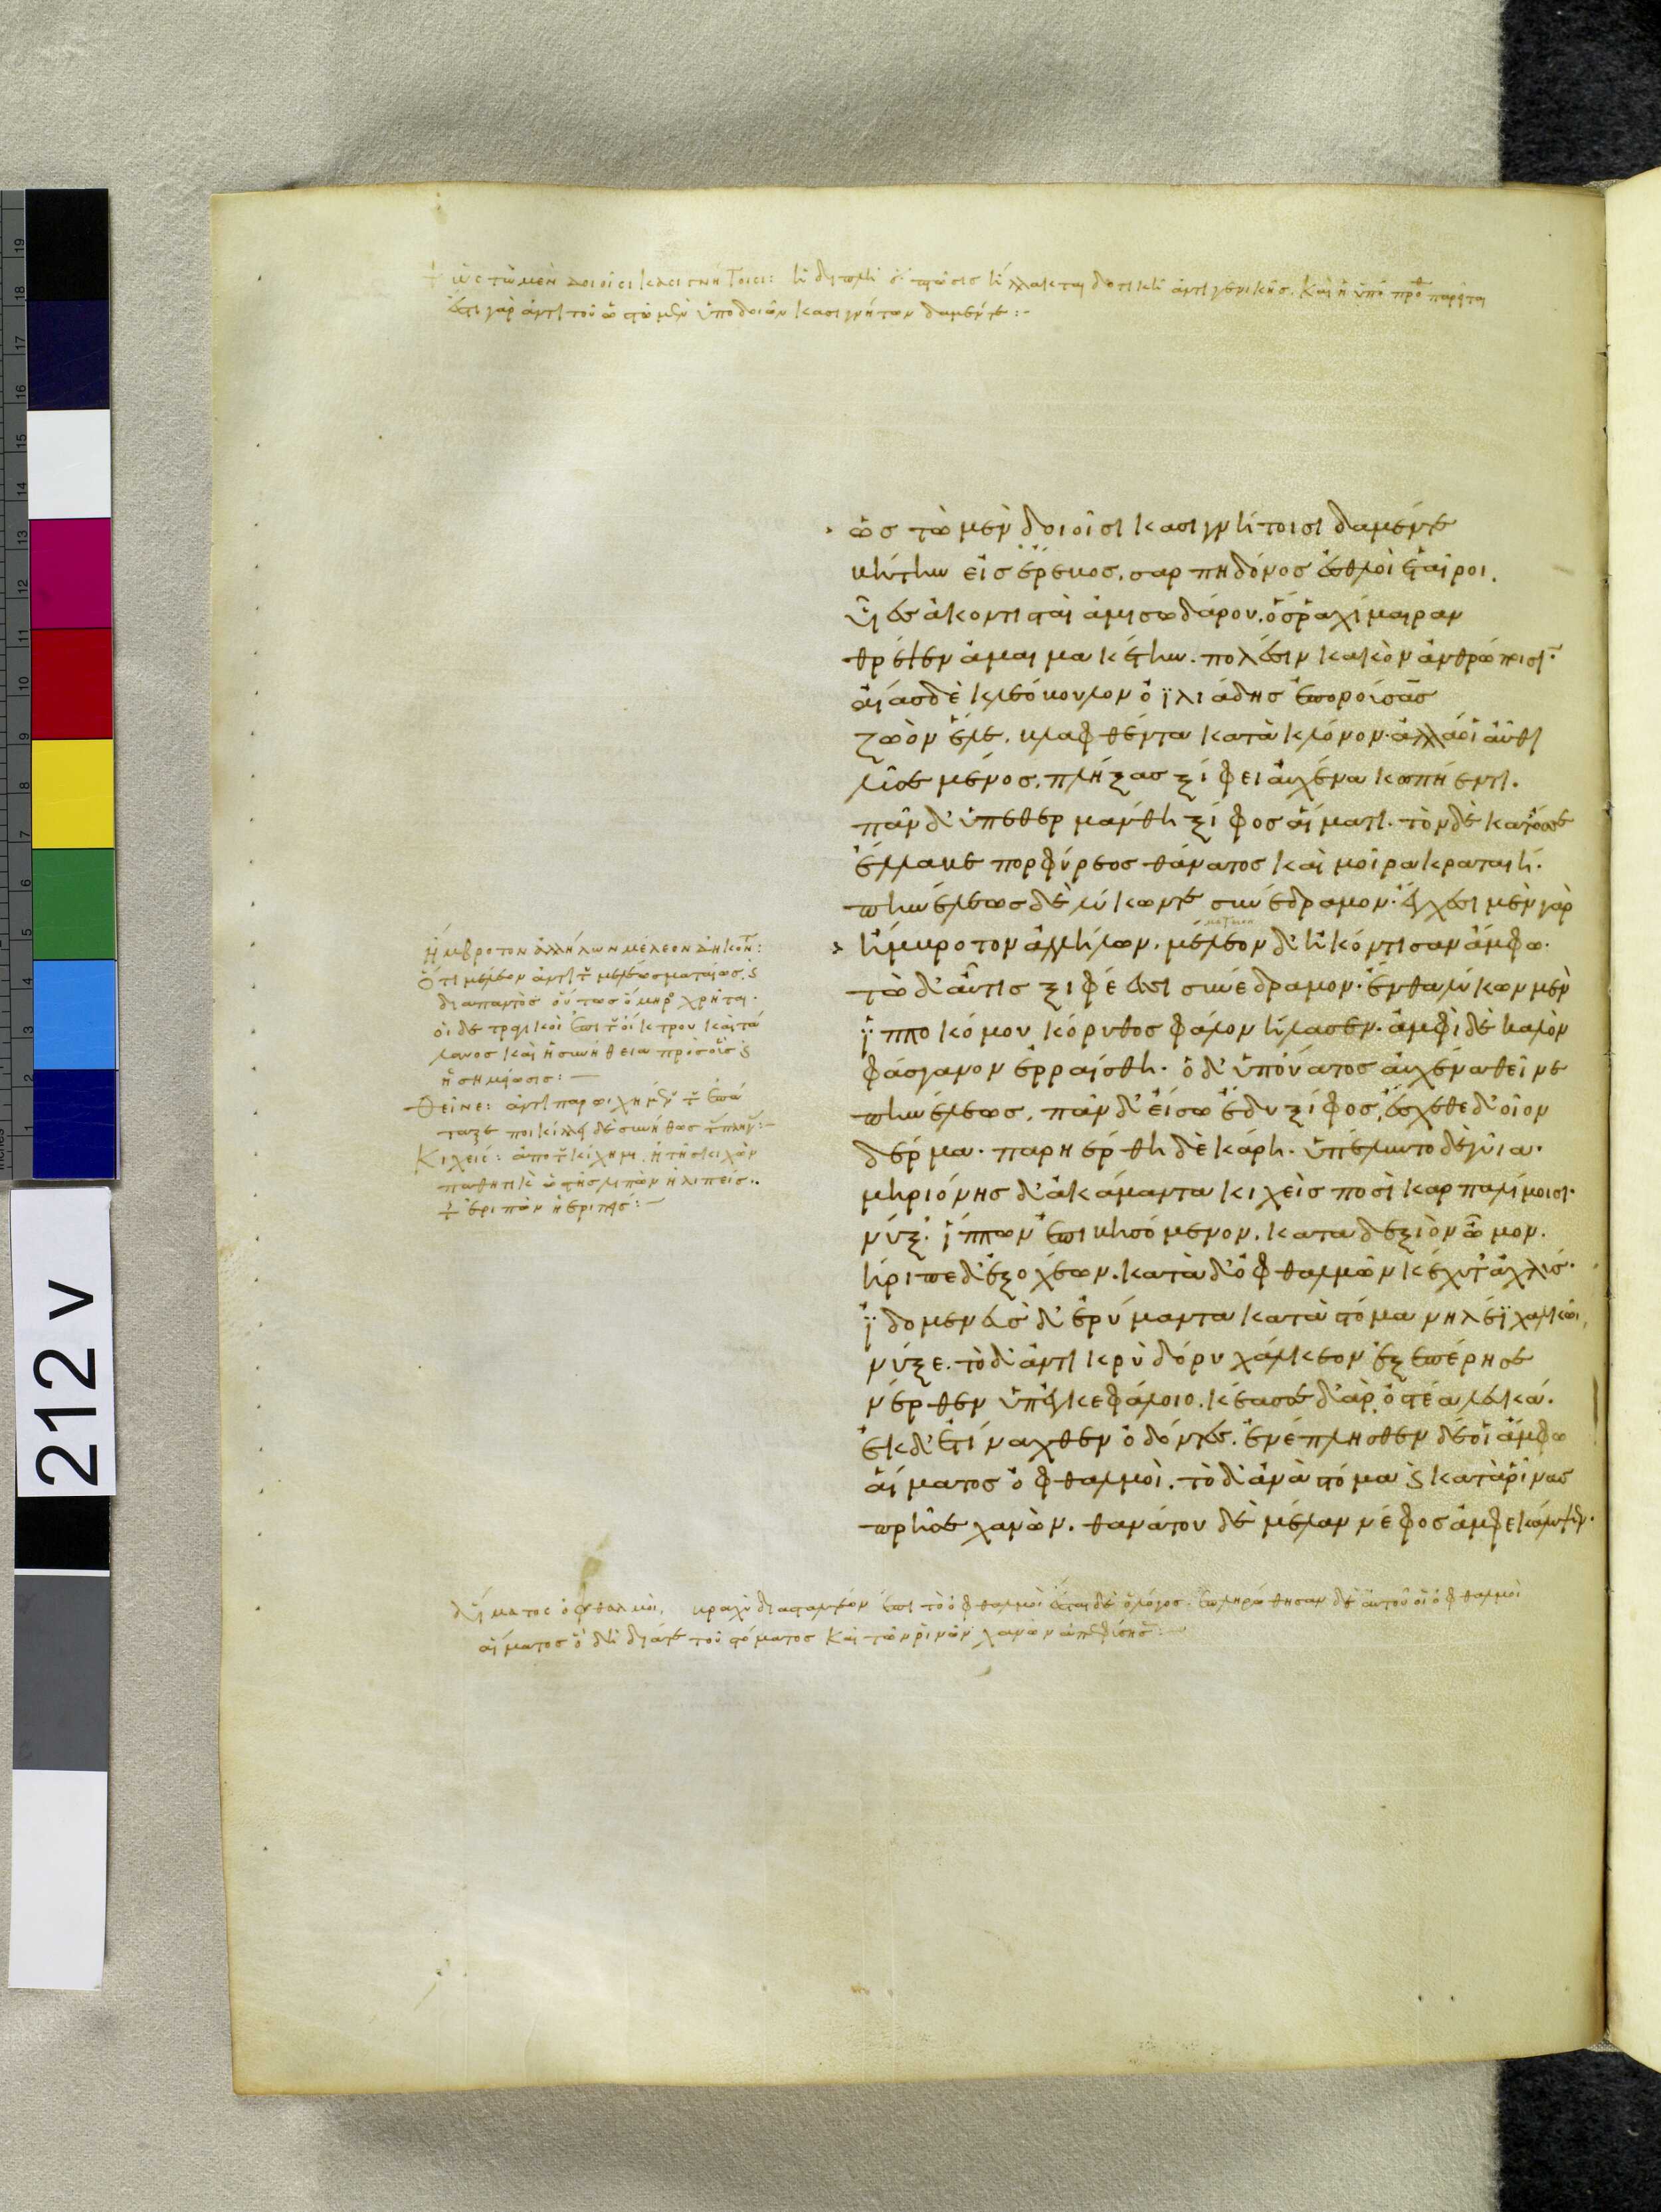 ὡς τὼ μὲν δοιοῖσι κασιγνήτοισι: ἡ διπλῆ ὅτι πτῶσις ἤλλακται δοτικὴ ἀντὶ γενικῆς. καὶ ἡ ὑπό πρόθ παρεῖται
ἔστι γὰρ ἀντὶ τοῦ ὣς τὼ μὲν ὑπο δοιῶν κασιγνήτων δαμέντε:~
ὣς τὼ μὲν δοιοῖσι κασιγνήτοισι δαμέντε
βήτην εἰς ἔρεβος. σαρπηδόνος ἐσθλοὶ ἑταῖροι.
υἷες ἀκοντισταὶ ἀμισωδάρου. ὅς ῥα χίμαιραν
θρέψεν ἀμαιμακέτην. πολέσιν κακὸν ἀνθρώποισι·
αἴας δὲ κλεόβουλον ὀϊλιάδης ἐπορούσας
ζωὸν ἕλε. βλαφθέντα κατὰ κλόνον· ἀλλά οἱ αὖθι
λῦσε μένος. πλήξας ξίφει αὐχένα κωπήεντι.
πᾶν δ' ὑπεθερμάνθη ξίφος αἵματι. τὸν δὲ κατ' ὄσσε
ἔλλαβε πορφύρεος θάνατος καὶ μοῖρα κραταιή.
πηνέλεως δὲ λύκων τε συνέδραμον· ἔγχεσι μὲν γὰρ
ἤμβροτον ἀλλήλων. μέλεον δ' ἠκόντισαν ἄμφω.
τὼ δ' αὖτις ξιφέεσσι συνέδραμον. ἔνθα λύκων μὲν
ἱπποκόμου κόρυθος φάλον ἤλασεν. ἀμφὶ δὲ καλὸν
φάσγανον ἐρραίσθη. ὁ δ' ὑπ' οὔατος αὐχένα θεῖνε
πηνέλεως. πᾶν δ' εἴσω ἔδυ ξίφος, ἔσχεθε δ' οἶον
δέρμα. παρηέρθη δὲ κάρη. ὑπέλυντο δὲ γῦια.
μηριόνης δ' ἀκάμαντα κιχεὶς ποσὶ καρπαλίμοισι.
νύξ' ἵππων ἐπιβησόμενον. κατα δεξιὸν ὦμον.
ἤριπε δ' ἐξ ὀχέων. κατὰ δ' ὀφθαλμῶν κέχυτ' ἀχλύς.
ἰδομενεὺς δ' ἐρύμαντα κατὰ στόμα νηλέϊ χαλκῶι
νύξε. τὸ δ' ἀντικρὺ δόρυ χάλκεον ἐξεπέρησε
νέρθεν ὑπ' ἐγκεφάλοιο. κέασσε δ' ἄρ' ὀστέα λευκά.
ἐκ δ' ἐτίναχθεν ὀδόντες. ἐνέπλησθεν δέ οἱ ἄμφω
αἵματος ὀφθαλμοὶ. τὸ δ' ἀνὰ στόμα καὶ κατὰ ῥῖνας
πρῆσε χανών. θανάτου δὲ μέλαν νέφος ἀμφεκάλυψεν.
Ἤμβροτον ἀλλήλων μέλεον δ' ἠκόντ:
ὅτι μέλεον ἀντὶ τοῦ μελέως ματαίως. καὶ
διαπαντὸς οὕτως ὅμηρος χρῆται.
οἱ δε τραγικοὶ ἐπὶ τοῦ οἰκτροῦ καὶ τά
λανος καὶ ἡ συνήθεια πρὸς οὓς καὶ
ἡ σημείωσις:—
Θεῖνε: ἀντὶ παρωιχημένου τοῦ ἐπά
ταξε ποικίλλει δὲ συνήθως τ πληγ:—
Κιχείς: ἀπο τοῦ κίχημι. ἢ τῆς κιχὼν